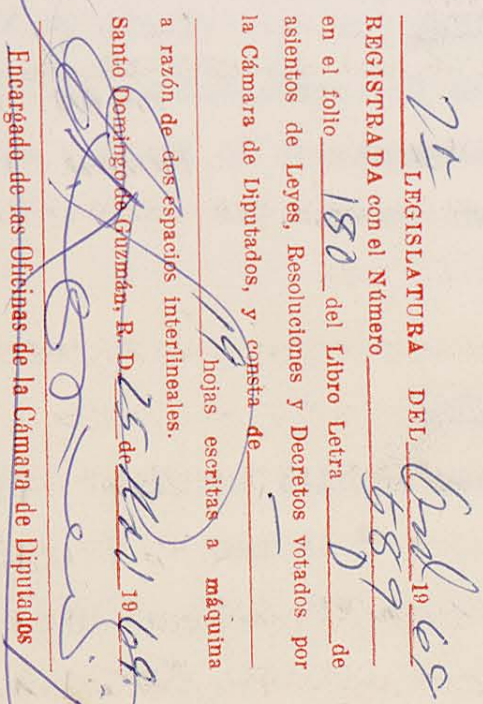 2a LEGISLATURA DEL Ord 1968
REGISTRADA con el Número 589
en el folio 180 del Libro Letra D de
asientos de Leyes, Resoluciones y Decretos votados por
la Cámara de Diputados, y consta de
19 hojas escritas a máquina
a razón de dos espacios interlineales.
Santo Domingo de Guzmán, R. D. 25 de 1969
Encargado de las Oficinas de la Cámara de Diputados